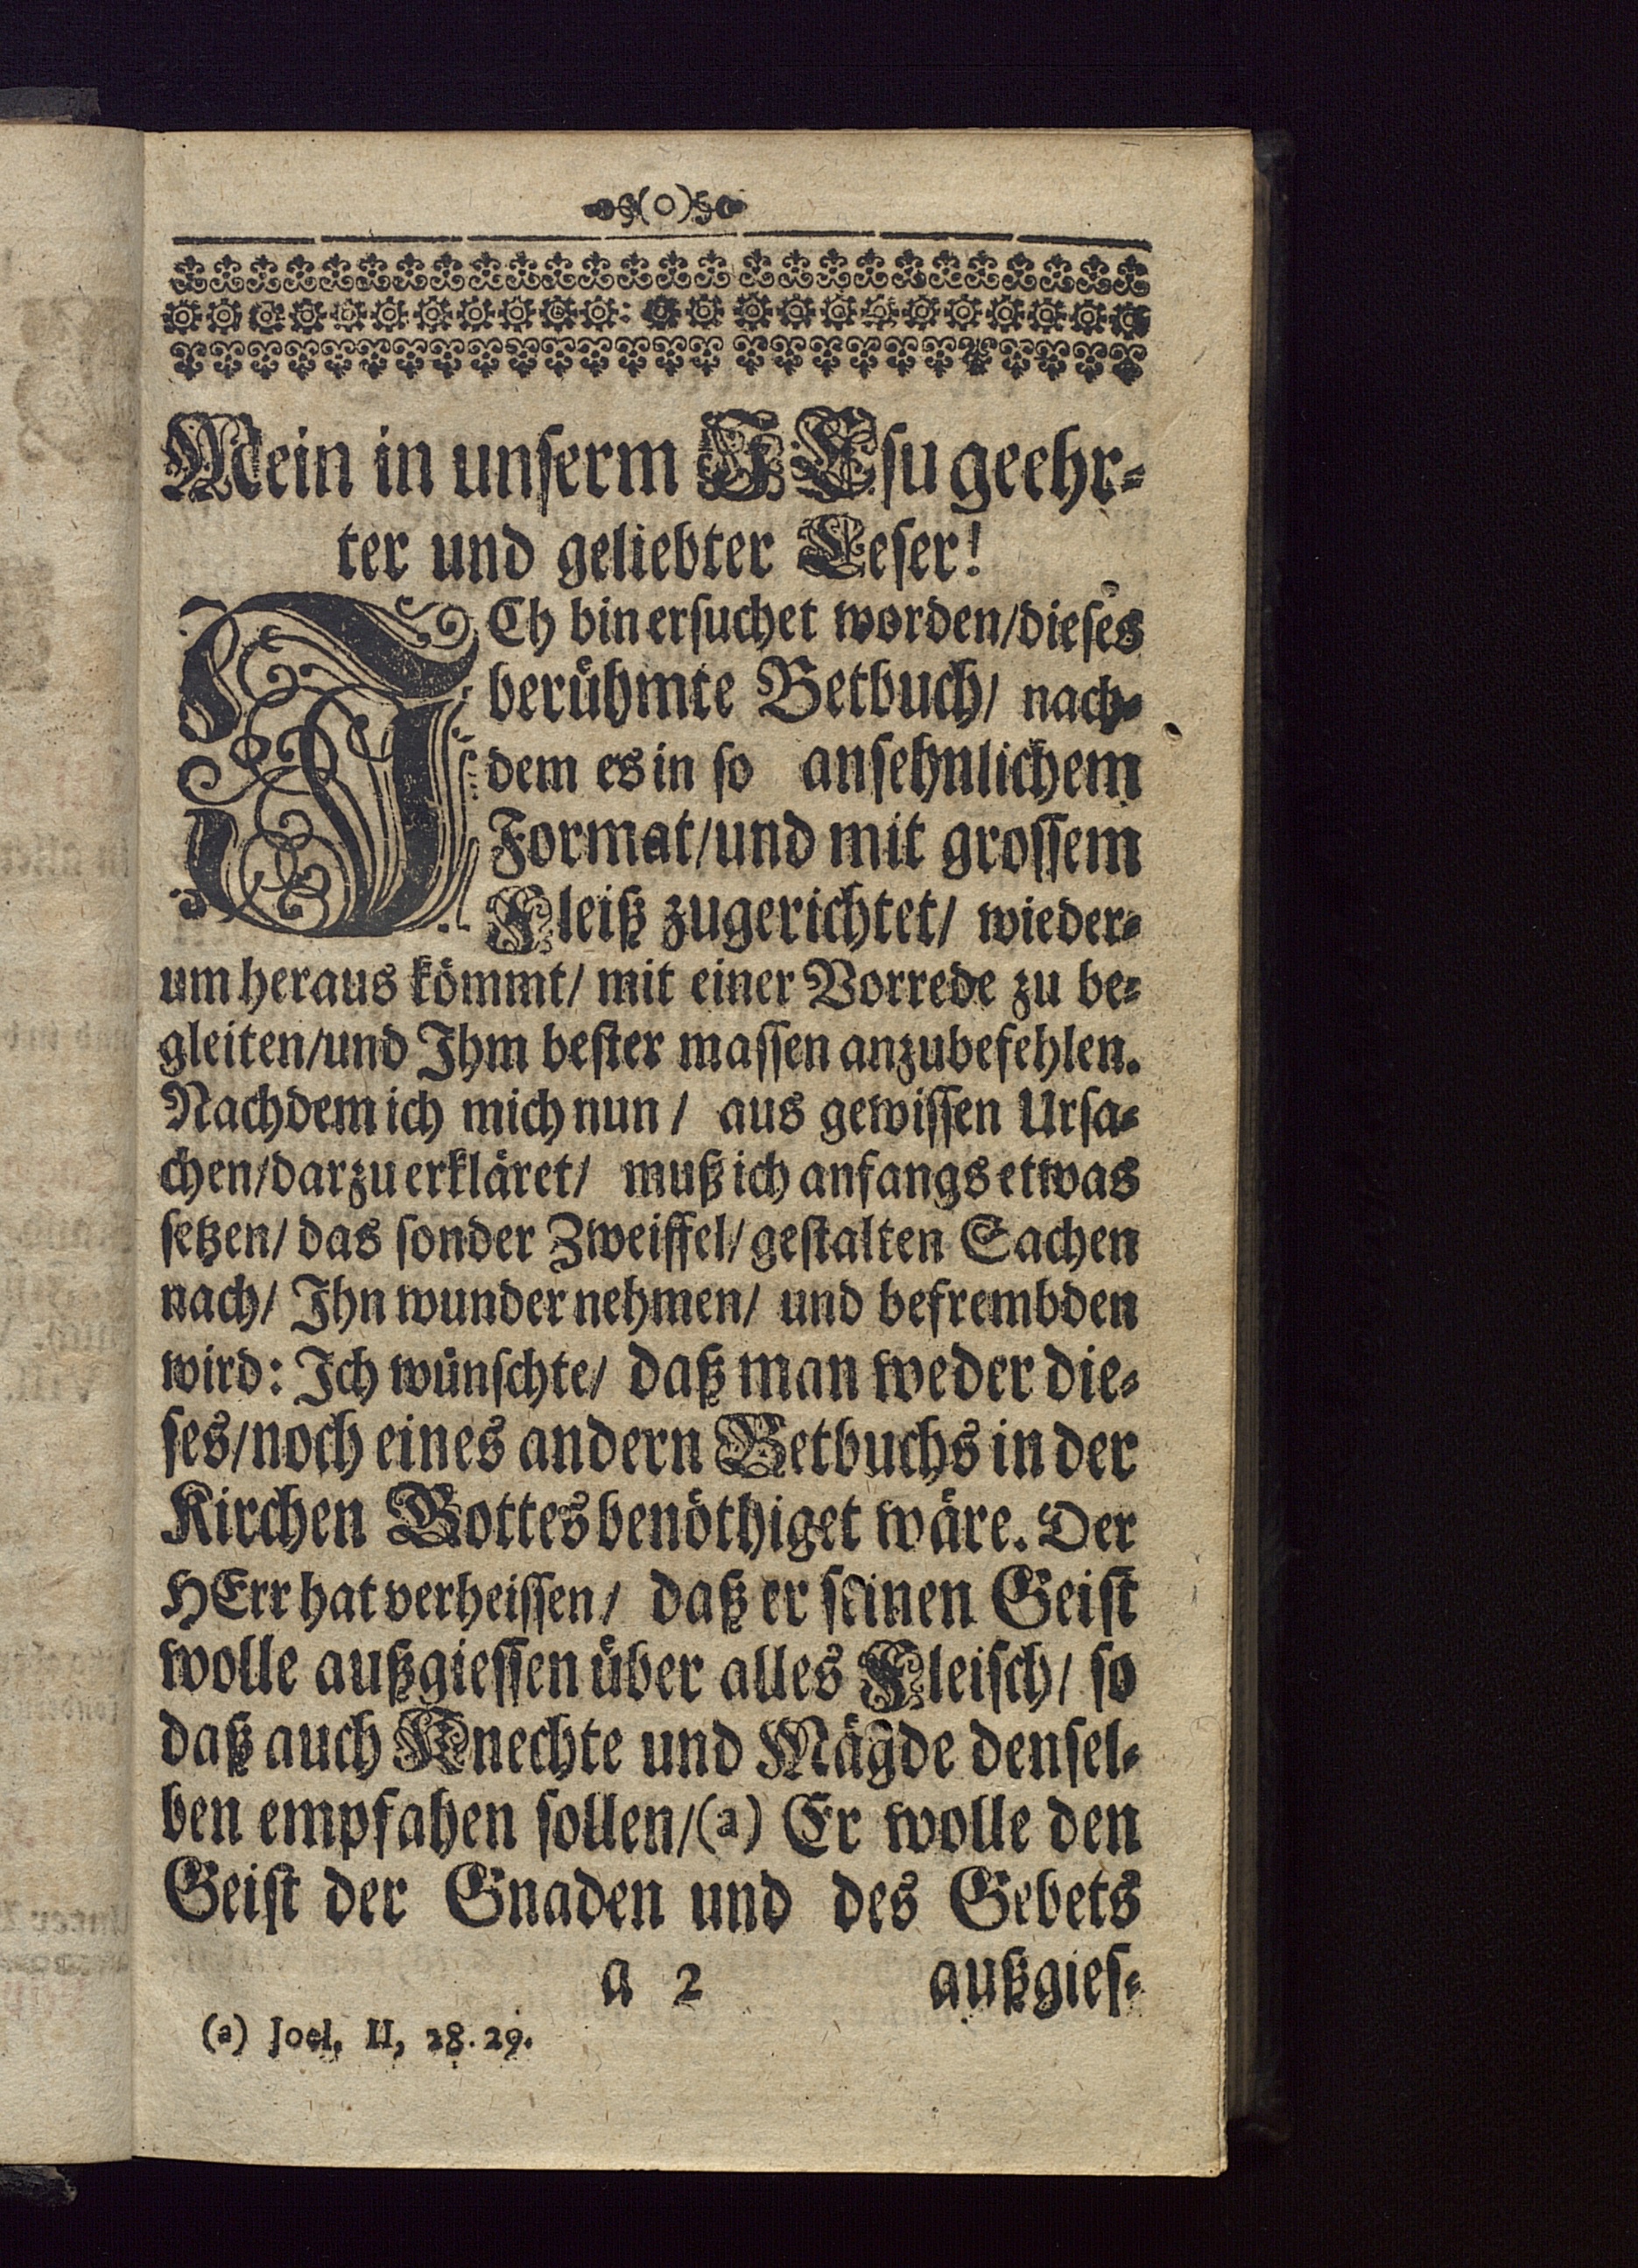 (o)
Mein in unserm JEsu geehr-
ter und geliebter Leser!
JCh bin ersuchet worden/dieses
berühmte Betbuch/ nach-
dem es in so ansehnlichem
Format/und mit grossem
Fleiß zugerichtet/ wieder-
um heraus kömmt/ mit einer Vorrede zu be-
gleiten/und Jhm bester massen anzubefehlen.
Nachdem ich mich nun/ aus gewissen Ursa-
chen/darzu erkläret/ muß ich anfangs etwas
setzen/ das sonder Zweiffel/gestalten Sachen
nach/ Jhn wunder nehmen/ und befrembden
wird: Jch wünschte/ daß man weder die-
ses/noch eines andern Betbuchs in der
Kirchen Gottes benöthiget wäre. Der
HErr hat verheissen/ daß er seinen Geist
wolle außgiessen über alles Fleisch/ so
daß auch Knechte und Mägde densel-
ben empfahen sollen/(a) Er wolle den
Geist der Gnaden und des Gebets
a 2 außgies-
(a) Joel, II, 28. 29.